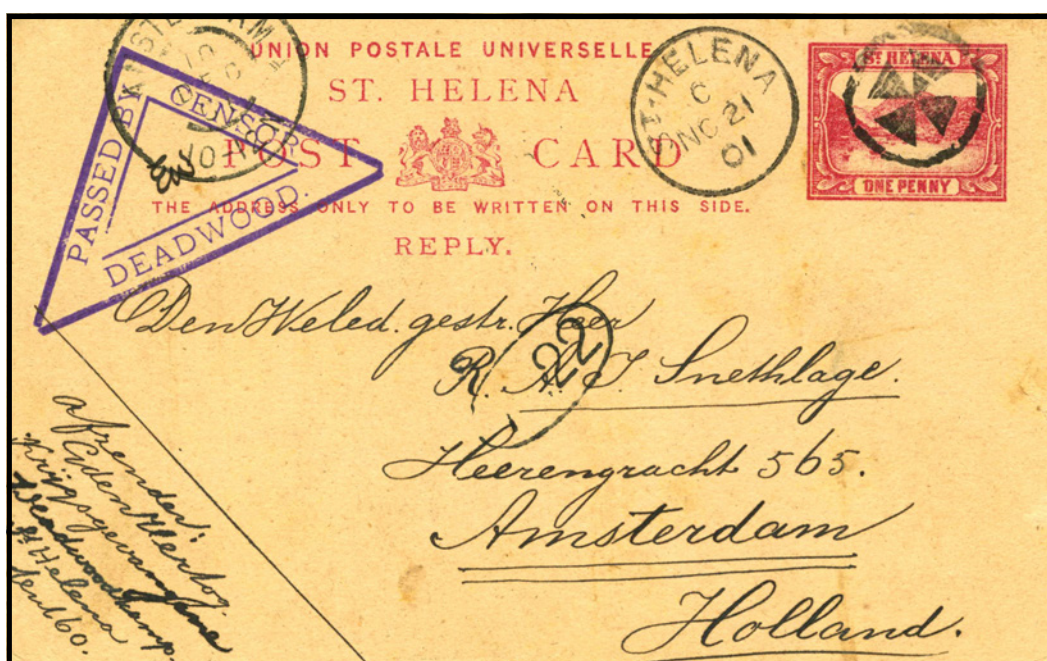 UNION POSTALE UNIVERSELLE
ST. HELENA
POST CARD
THE ADDRESS ONLY TO BE WRITTEN ON THIS SIDE.
REPLY.
PASSED BY
CENSOR
DEADWOOD.
ST. HELENA
C
NO 21
01
ST. HELENA
ONE PENNY
Den Weled. gestr. Heer
R. A. J. Snethlage.
22
Heerengracht 565.
Amsterdam
Holland.
afzender:
den Hertog.
Krijgsgevangene
Deadwoodkamp.
St. Helena
Tent 60.